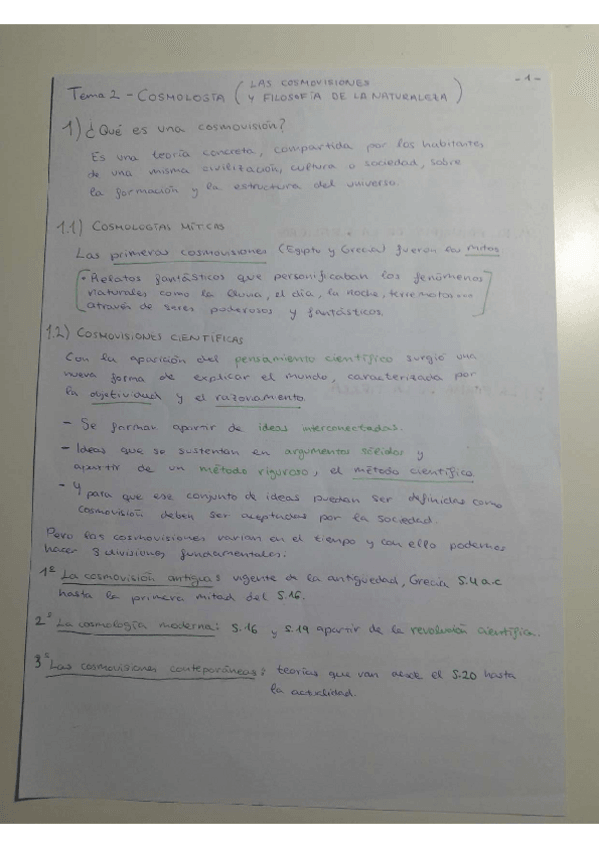 - 1 -
Tema 2 - COSMOLOGÍA ( LAS COSMOVISIONES
Y FILOSOFÍA DE LA NATURALEZA )
1) ¿Qué es una cosmovisión?
Es una teoría concreta, compartida por los habitantes
de una misma civilización, cultura o sociedad, sobre
la formación y la estructura del universo.
1.1) COSMOLOGÍAS MÍTICAS
Las primeras cosmovisiones (Egipto y Grecia) fueron los mitos
• Relatos fantásticos que personificaban los fenómenos
naturales como la lluvia, el día, la noche, terremotos...
através de seres poderosos y fantásticos.
1.2) COSMOVISIONES CIENTÍFICAS
Con la aparición del pensamiento científico surgió una
nueva forma de explicar el mundo, caracterizada por
la objetividad y el razonamiento.
- Se forman apartir de ideas interconectadas.
- Ideas que se sustentan en argumentos sólidos y
apartir de un método riguroso, el método científico
- Y para que ese conjunto de ideas puedan ser definidas como
cosmovisión deben ser aceptadas por la sociedad.
Pero las cosmovisiones varian en el tiempo y con ello podemos
hacer 3 divisiones fundamentales:
1º La cosmovisión antigua: vigente de la antigüedad, Grecia S.4 a.c
hasta la primera mitad del S.16.
2º La cosmología moderna: S.16 y S.19 apartir de la revolución científica.
3º Las cosmovisiones conteporáneas: teorías que van desde el S.20 hasta
la actualidad.